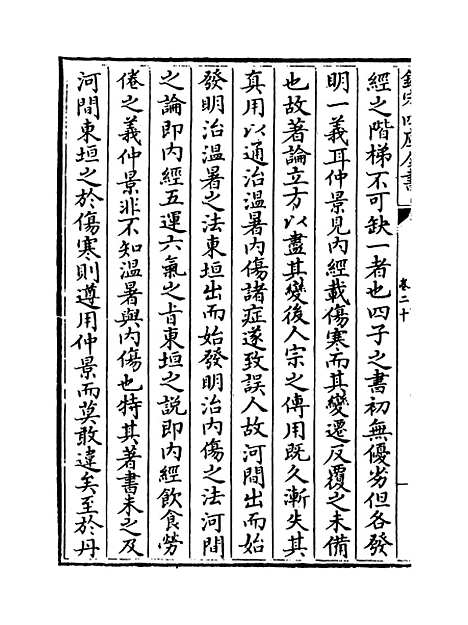 欽定四庫全書
卷二十
經之階梯不可缺一者也四子之書初無優劣但各發
明一義耳仲景見內經載傷寒而其變遷反覆之未備
也故著論立方以盡其變後人宗之傳用既久漸失其
真用以通治溫暑內傷諸症遂致誤人故河間出而始
發明治溫暑之法東垣出而始發明治內傷之法河間
之論即內經五運六氣之旨東垣之說即內經飲食勞
倦之義仲景非不知溫暑與內傷也特其著書未之及
河間東垣之於傷寒則遵用仲景而莫敢違矣至於丹